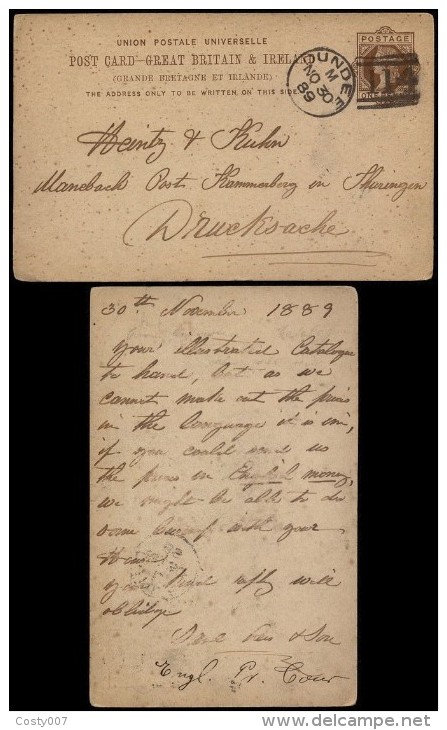 UNION POSTALE UNIVERSELLE
POST CARD-GREAT BRITAIN & IRELAND
(GRANDE BRETAGNE ET IRLANDE)
THE ADDRESS ONLY TO BE WRITTEN ON THIS SIDE
POSTAGE
DUNDEE
M
NO 30
89
114
Heintz & Kuhn
Manebach Post. Kammerberg in Thuringen
Drucksache
30th November 1889
Your illustrated Catalogue
to hand, but as we
cannot make out the prices
in the language it is in,
if you could send us
the prices in English money,
we might be able to do
some business with your
House
your kind reply will
oblidge
& Son
Engl. Pr. Cour
Costy007
www.delcampe.net